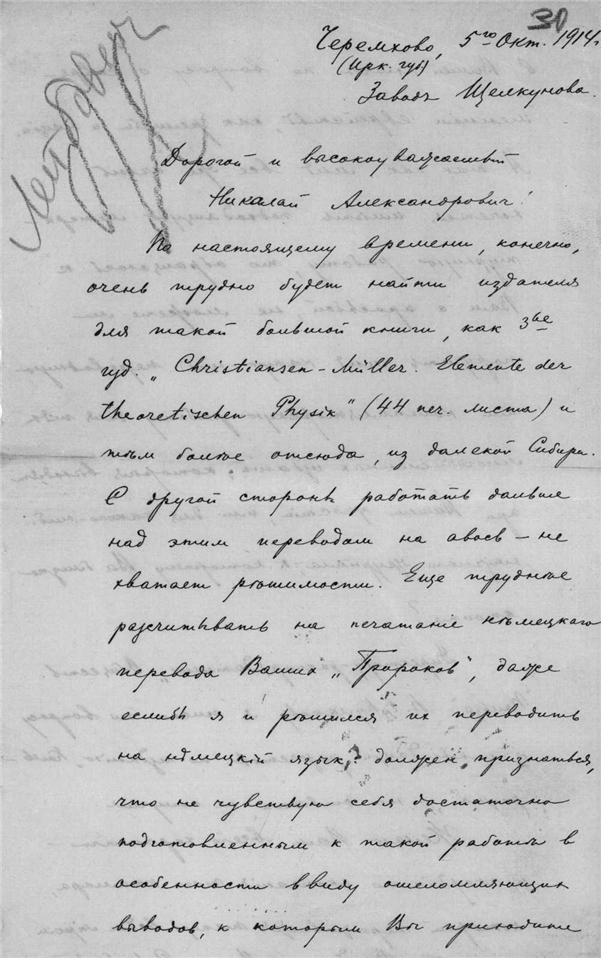 30
Черемхово, 5го Окт. 1914 г.
(Ирк. губ)
Заводъ Щелкунова.
Дорогой и высокоуважаемый
Николай Александровичъ!
По настоящему времени, конечно,
очень трудно будет найти издателя
для такой большой книги, как 3ье
изд. „Christiansen–Müller. Elemente der
theoretischen Physik" (44 печ. листа) и
тѣм болѣе отсюда, из далекой Сибири.
С другой стороны работать дальше
над этим переводом на авось – не
хватает рѣшимости. Еще труднѣе
разсчитывать на печатаніе нѣмецкаго
перевода Ваших „Пророков", даже
еслибы я и рѣшился их переводить
на нѣмецкій язык: должен признаться,
что не чувствую себя достаточно
подготовленным к такой работѣ в
особенности ввиду ошеломляющих
выводов, к которым Вы приходите